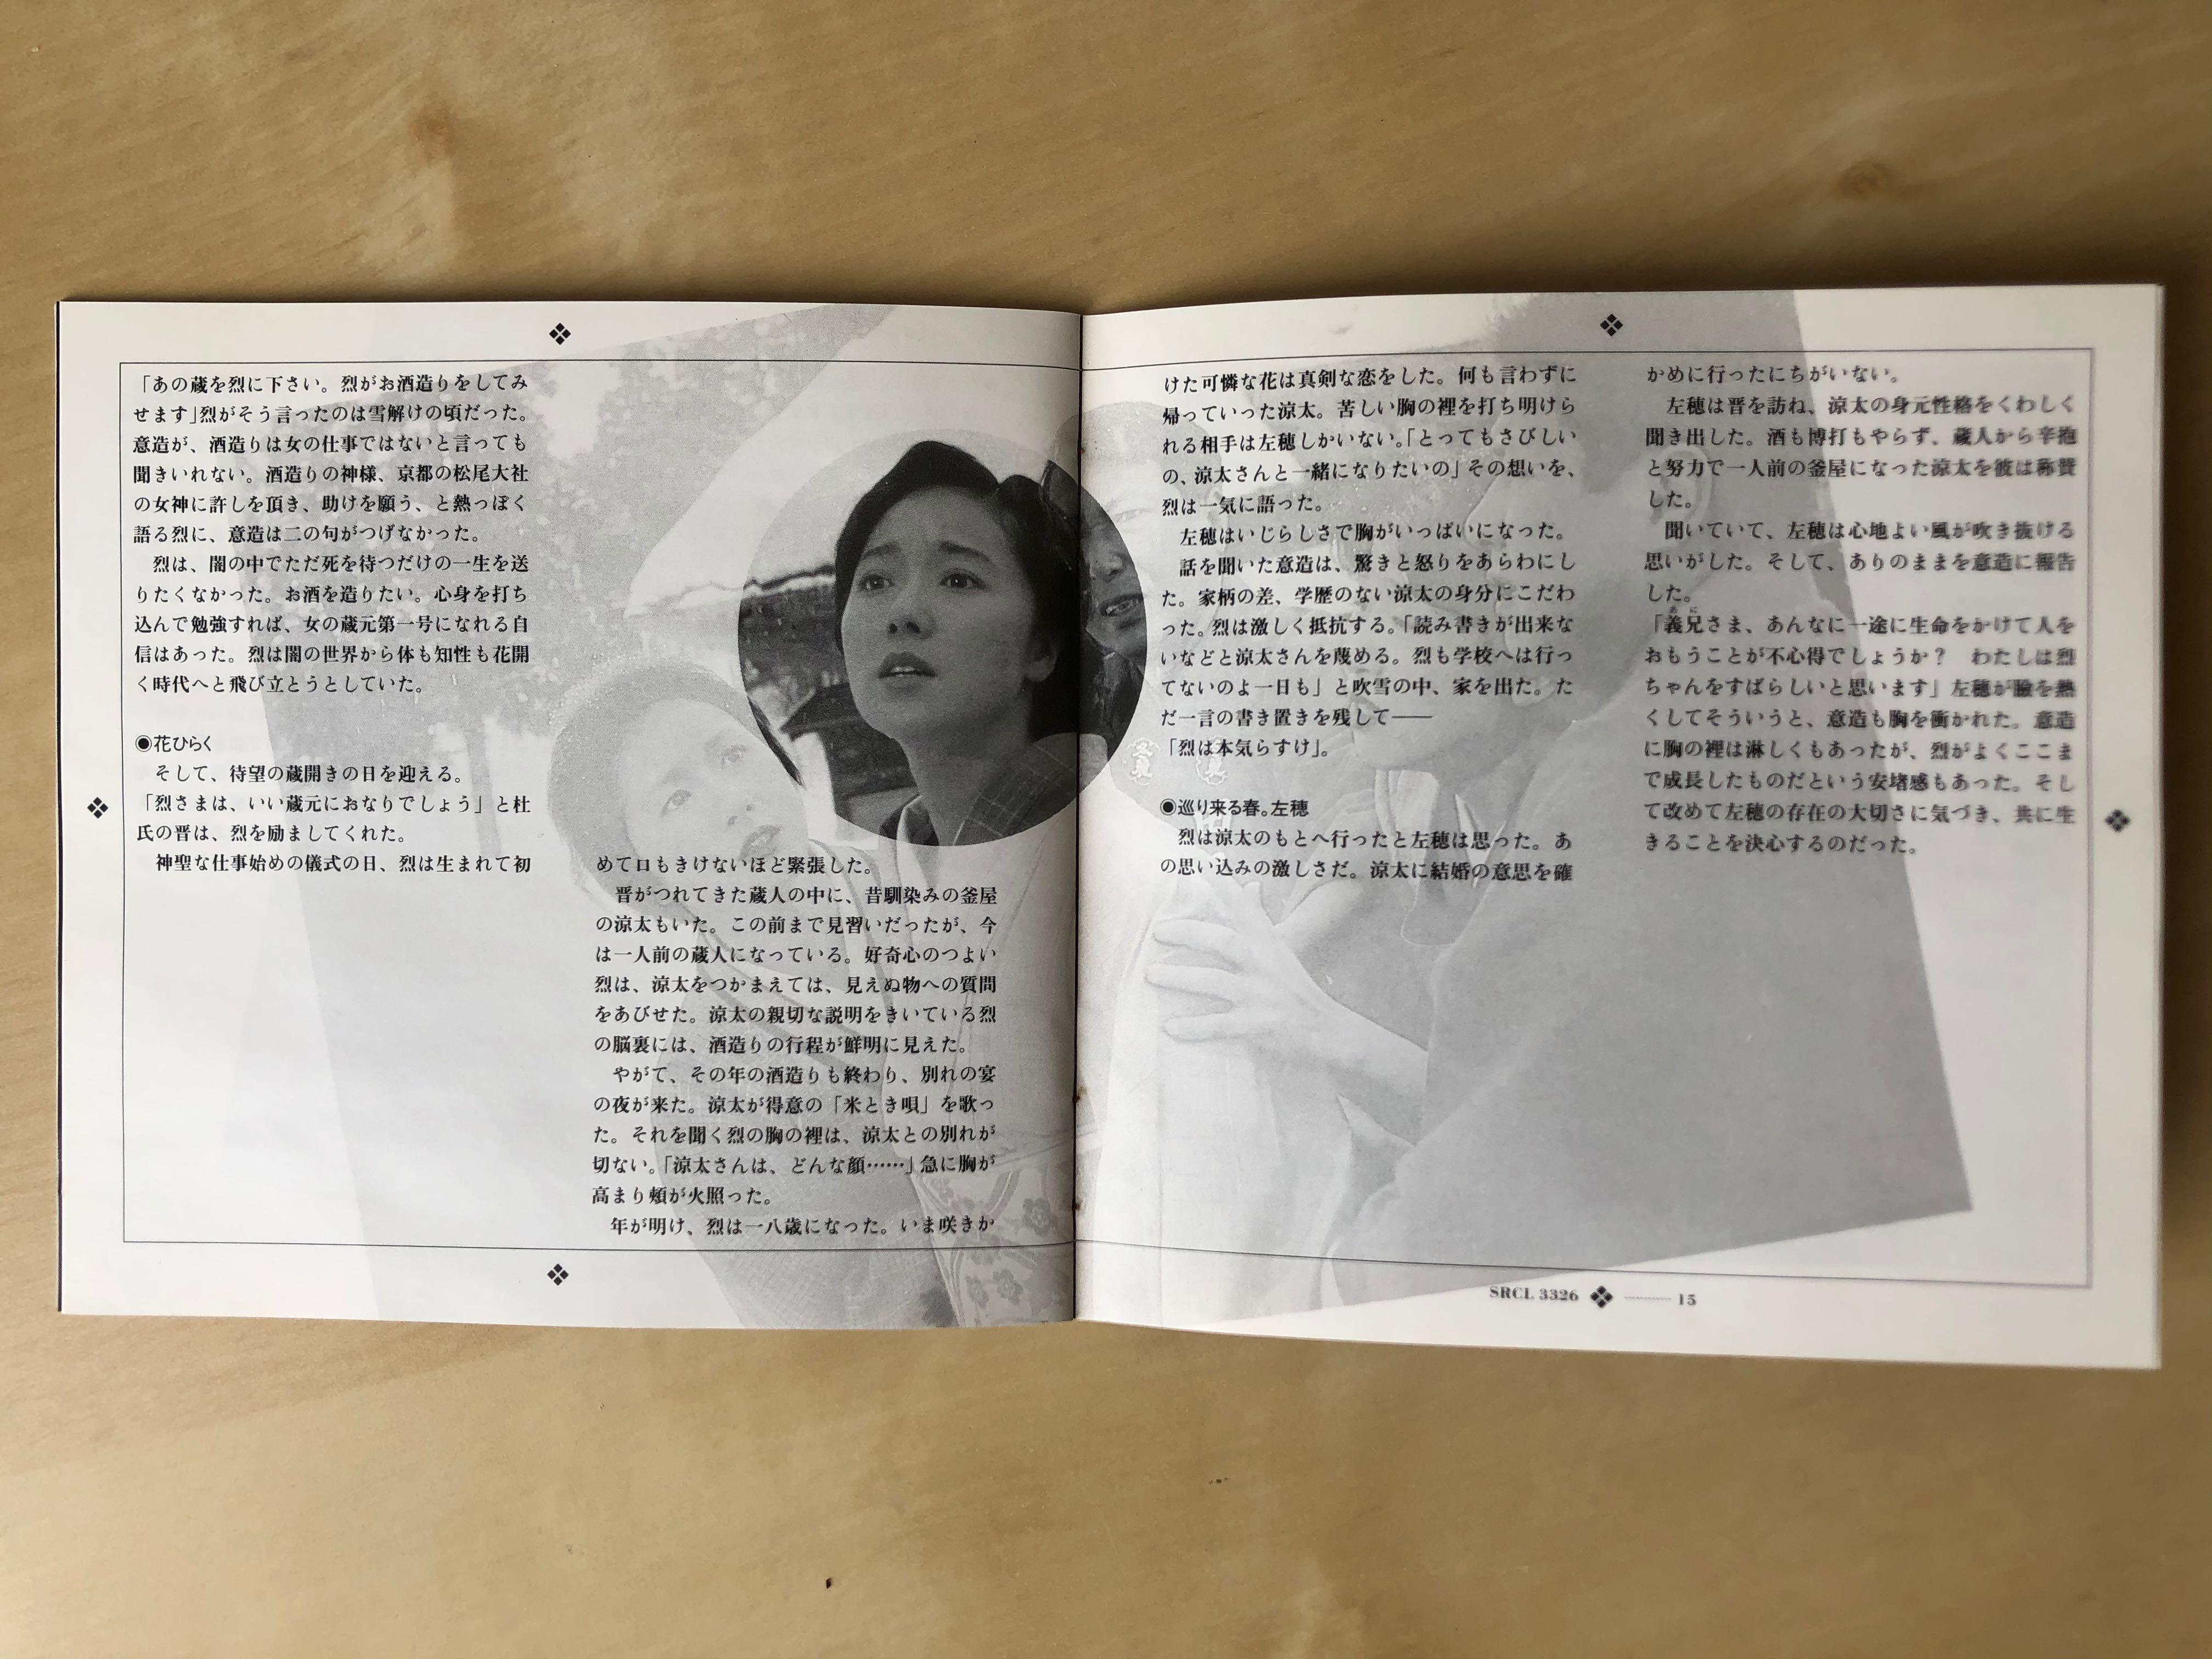 「あの蔵を烈に下さい。烈がお酒造りをしてみ
せます」烈がそう言ったのは雪解けの頃だった。
意造が、酒造りは女の仕事ではないと言っても
聞きいれない。酒造りの神様、京都の松尾大社
の女神に許しを頂き、助けを願う、と熱っぽく
語る烈に、意造は二の句がつげなかった。
烈は、闇の中でただ死を待つだけの一生を送
りたくなかった。お酒を造りたい。心身を打ち
込んで勉強すれば、女の蔵元第一号になれる自
信はあった。烈は闇の世界から体も知性も花開
く時代へと飛び立とうとしていた。
◉花ひらく
そして、待望の蔵開きの日を迎える。
「烈さまは、いい蔵元におなりでしょう」と杜
氏の晋は、烈を励ましてくれた。
神聖な仕事始めの儀式の日、烈は生まれて初
めて口もきけないほど緊張した。
晋がつれてきた蔵人の中に、昔馴染みの釜屋
の涼太もいた。この前まで見習いだったが、今
は一人前の蔵人になっている。好奇心のつよい
烈は、涼太をつかまえては、見えぬ物への質問
をあびせた。涼太の親切な説明をきいている烈
の脳裏には、酒造りの行程が鮮明に見えた。
やがて、その年の酒造りも終わり、別れの宴
の夜が来た。涼太が得意の「米とき唄」を歌っ
た。それを聞く烈の胸の裡は、涼太との別れが
切ない。「涼太さんは、どんな顔……」急に胸が
高まり頬が火照った。
年が明け、烈は一八歳になった。いま咲きか
けた可憐な花は真剣な恋をした。何も言わずに
帰っていった涼太。苦しい胸の裡を打ち明けら
れる相手は左穂しかいない。「とってもさびしい
の、涼太さんと一緒になりたいの」その想いを、
烈は一気に語った。
左穂はいじらしさで胸がいっぱいになった。
話を聞いた意造は、驚きと怒りをあらわにし
た。家柄の差、学歴のない涼太の身分にこだわ
った。烈は激しく抵抗する。「読み書きが出来な
いなどと涼太さんを蔑める。烈も学校へは行っ
てないのよ一日も」と吹雪の中、家を出た。た
だ一言の書き置きを残して——
「烈は本気らすけ」。
◉巡り来る春。左穂
烈は涼太のもとへ行ったと左穂は思った。あ
の思い込みの激しさだ。涼太に結婚の意思を確
かめに行ったにちがいない。
左穂は晋を訪ね、涼太の身元性格をくわしく
聞き出した。酒も博打もやらず、蔵人から辛抱
と努力で一人前の釜屋になった涼太を彼は称賛
した。
聞いていて、左穂は心地よい風が吹き抜ける
思いがした。そして、ありのままを意造に報告
した。
あに
「義兄さま、あんなに一途に生命をかけて人を
おもうことが不心得でしょうか？　わたしは烈
ちゃんをすばらしいと思います」左穂が瞼を熱
くしてそういうと、意造も胸を衝かれた。意造
に胸の裡は淋しくもあったが、烈がよくここま
で成長したものだという安堵感もあった。そし
て改めて左穂の存在の大切さに気づき、共に生
きることを決心するのだった。
SRCL 3326 15